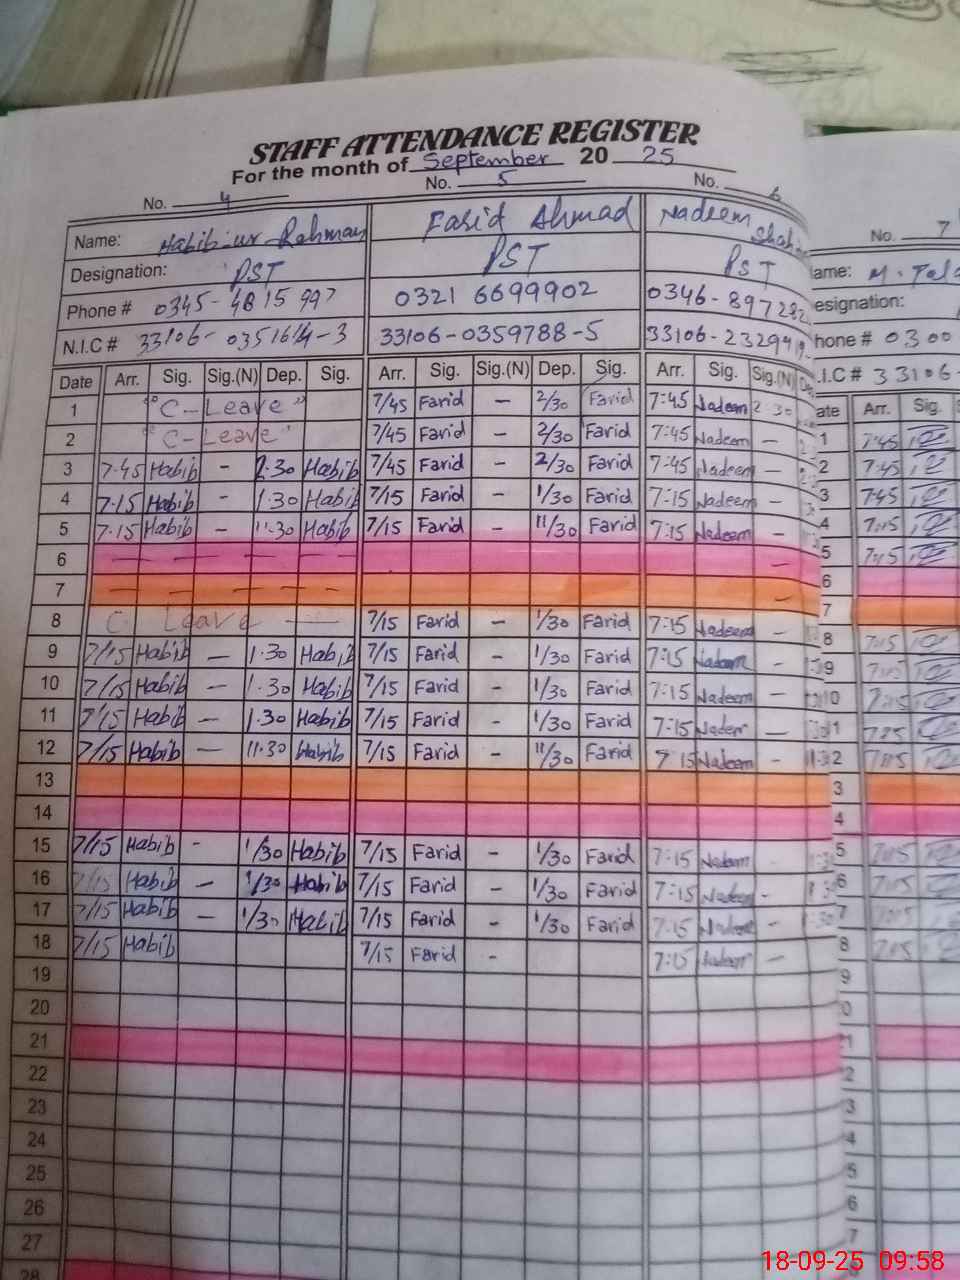 STAFF ATTENDANCE REGISTER
For the month of September 20 25
No. 4 No. 5 No. 6 No. 7
Name: Habib-ur-Rehman Farid Ahmad Nadeem Name: M.
Designation: PST PST PST Designation:
Phone # 0345-4815997 0321 6699902 0346- Phone # 0300
N.I.C # 33106- 33106-0359788-5 33106- N.I.C # 33106-
Date Arr. Sig. Sig.(N) Dep. Sig. Arr. Sig. Sig.(N) Dep. Sig. Arr. Sig. Sig.(N) Date Arr. Sig.
1 "C-Leave" 7/45 Farid - 2/30 Farid 7:45 Nadeem 2 30 1 7:45
2 "C-Leave" 7/45 Farid - 2/30 Farid 7:45 Nadeem - 2 7:45
3 7.45 Habib - 2.30 Habib 7/45 Farid - 2/30 Farid 7:45 Nadeem - 3 7:45
4 7.15 Habib - 1.30 Habib 7/15 Farid - 1/30 Farid 7:15 Nadeem - 4 7:15
5 7.15 Habib - 11.30 Habib 7/15 Farid - 11/30 Farid 7:15 Nadeem - 5
6 - - - - - - 6
7 - - - - - - 7
8 C. Leave - 7/15 Farid - 1/30 Farid 7:15 Nadeem - 8 7:15
9 7/15 Habib - 1.30 Habib 7/15 Farid - 1/30 Farid 7:15 Nadeem - 9
10 7/15 Habib - 1.30 Habib 7/15 Farid - 1/30 Farid 7:15 Nadeem - 10
11 7/15 Habib - 1.30 Habib 7/15 Farid - 1/30 Farid 7:15 Nadeem - 1
12 7/15 Habib - 11.30 Habib 7/15 Farid - 11/30 Farid 7 15 Nadeem - 2 7:15
13 3
14 4
15 7/15 Habib - 1/30 Habib 7/15 Farid - 1/30 Farid 7:15 Nadeem - 5 7:15
16 7/15 Habib - 1/30 Habib 7/15 Farid - 1/30 Farid 7:15 Nadeem - 6 7:15
17 7/15 Habib - 1/30 Habib 7/15 Farid - 1/30 Farid 7:15 Nadeem - 7
18 7/15 Habib 7/15 Farid - 7:15 Nadeem - 8 7:15
19 9
20 0
21 1
22 2
23 3
24 4
25 5
26 6
27 7
28
18-09-25 09:58